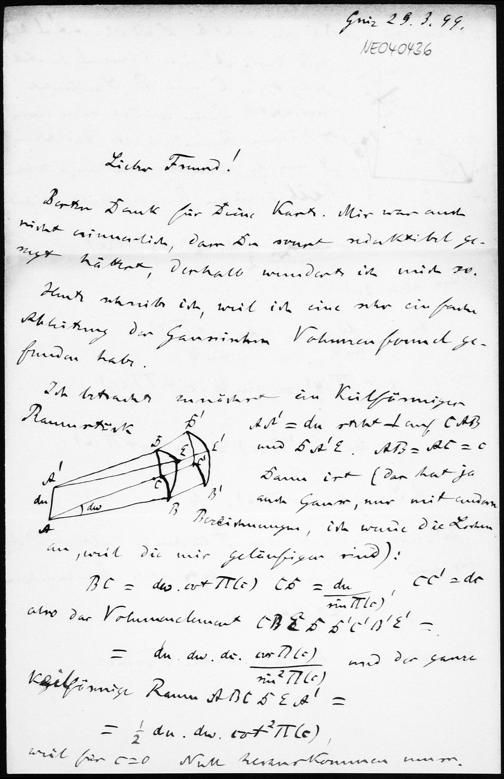 Gniz 29.3.99.
NE040436
Lieber Freund!
Besten Dank für Deine Karte. Mir war auch
nicht erinnerlich, dass Du sonst ge-
sagt hättest, deshalb wunderte ich mich so.
Heute schreibe ich, weil ich eine sehr einfache
Ableitung der Gaussischen Volumenformel ge-
funden habe.
Ich betrachte zunächst ein Keilförmiges
Raumstück
AA' = du steht ⊥ auf CAB
und DA'E. AB = AC = c
Dann ist (das hat ja
auch Gauss, nur mit andern
Bezeichnungen, ich wende die
an, weil die mir geläufiger sind):
D'
D
E
E'
C
C'
B
B'
A'
du
dw
A
BC = dw. cot Π(c) CD = du / sin Π(c), CC' = dc
also das Volumenelement CBED D'C'B'E' =
= du. dw. dc. cos Π(c) / sin² Π(c) und der ganze
keilförmige Raum ABCDEA' =
= ½ du. dw. cot² Π(c),
weil für c=0 Null herauskommen muss.